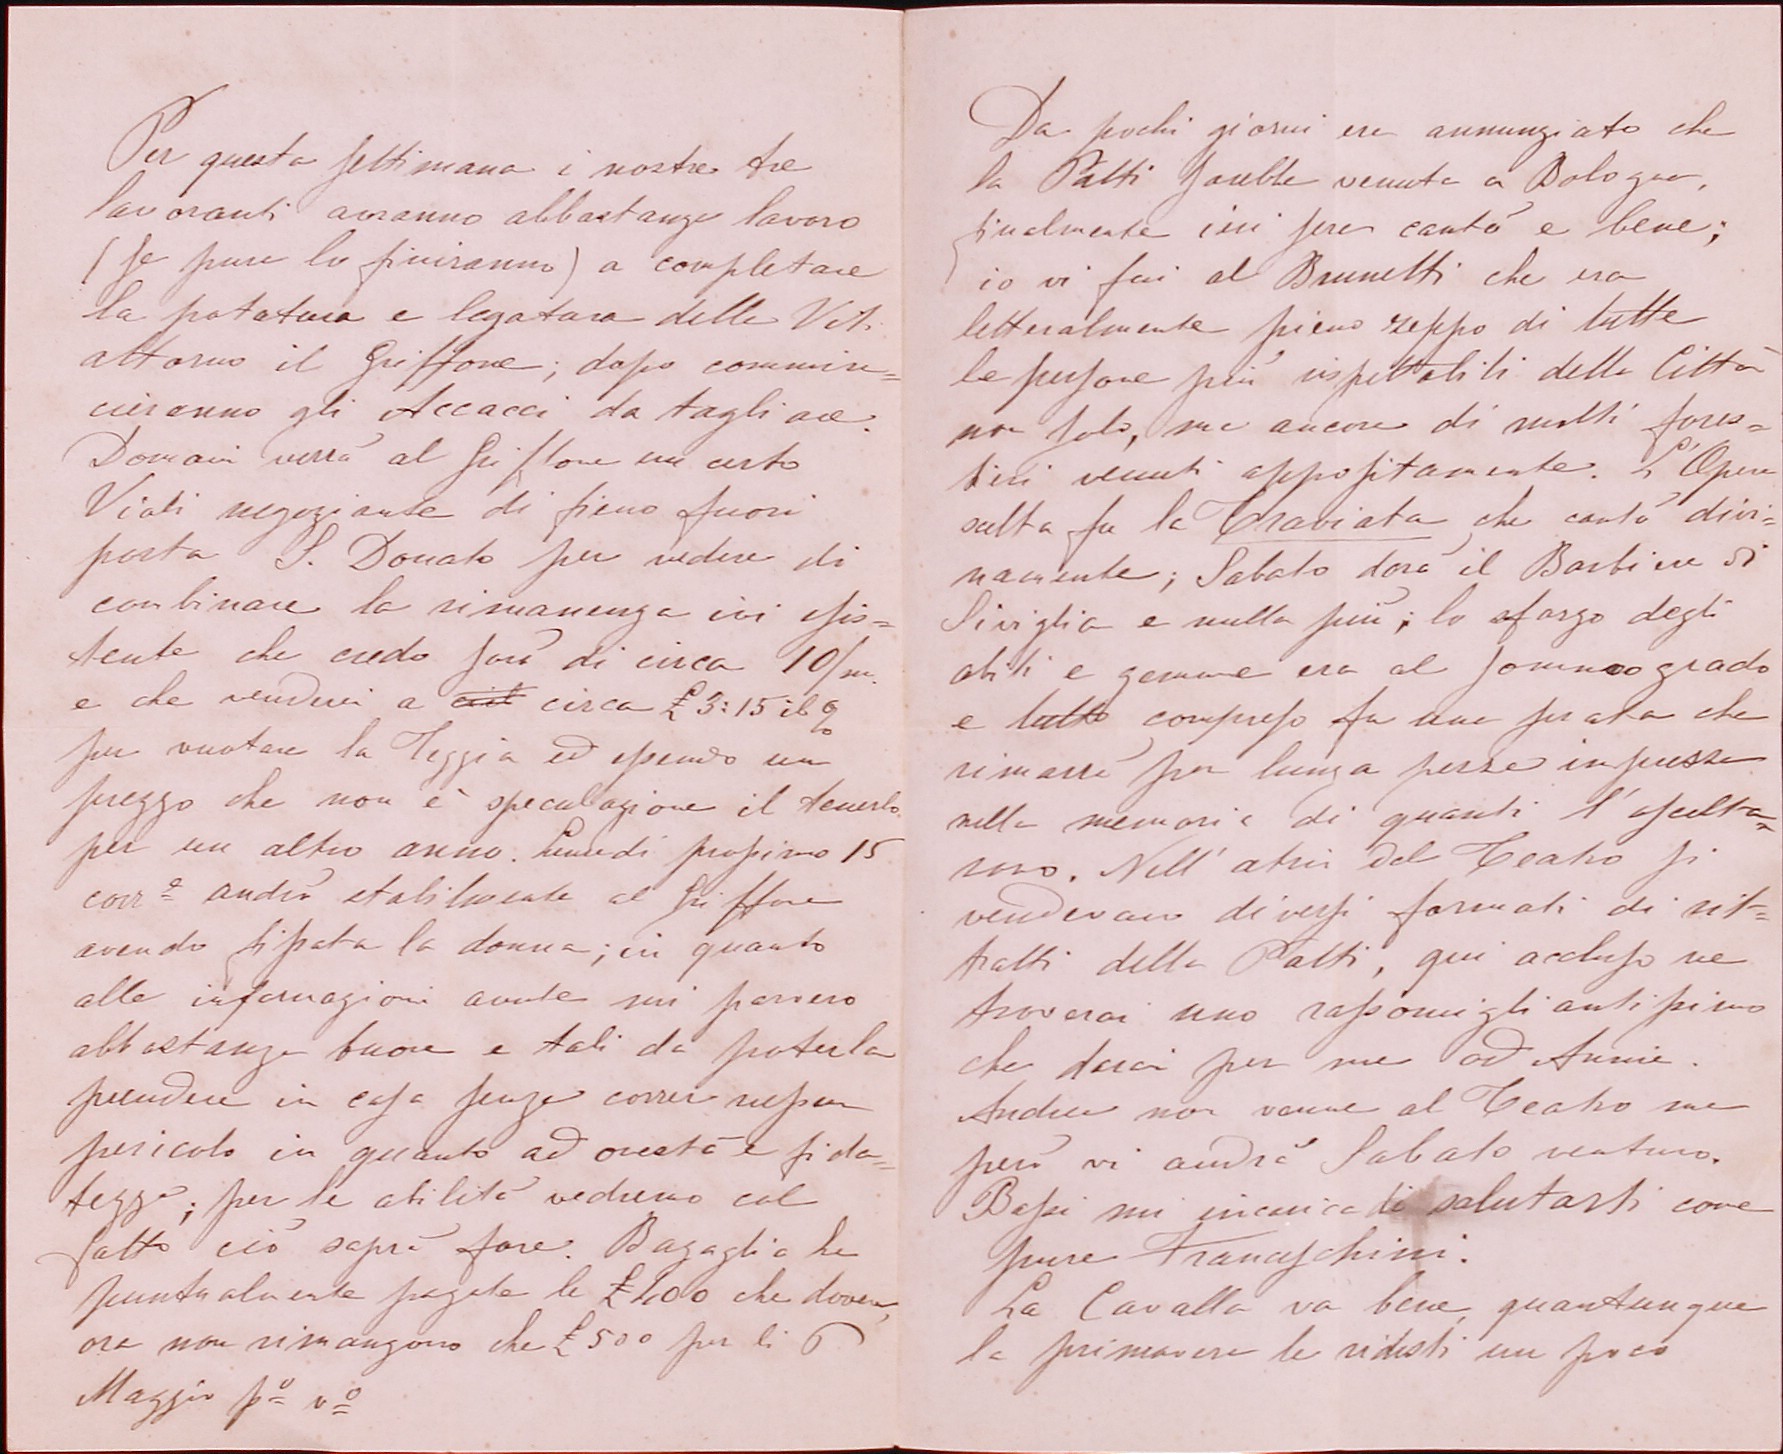 Per questa settimana i nostri tre
lavoranti avranno abbastanza lavoro
(se pure lo finiranno) a completare
la potatura e legatura delle Viti
attorno il Griffone; dopo commin=
cieranno gli Accacci da tagliare.
Domani verrà al Griffone un certo
Viati negoziante di fieno fuori
porta S. Donato per vedere di
combinare la rimanenza ivi esis=
tente che credo sarà di circa 10/m.
e che venderei a circa £ 3:15 il q
per vuotare la Teggia ed essendo un
prezzo che non è speculazione il tenerlo
per un altro anno. Lunedi prossimo 15
corre andrò stabilmente al Griffone
avendo fissata la donna; in quanto
alle informazioni avute mi parvero
abbastanza buone e tali da poterla
prendere in casa senza correr nessun
pericolo in quanto ad onestà e fida=
tezza; per le abilità vedremo col
fatto ciò saprà fare. Bagaglia ha
puntualmente pagate le £ 400 che doveva,
ora non rimangono che £ 500 per li 6
Maggio po vo
Da pochi giorni era annunziato che
la Patti sarebbe venuta a Bologna,
finalmente ieri sera cantò e bene;
io vi fui al Brunetti che era
letteralmente pieno zeppo di tutte
le persone più rispettabili della Città
non solo, ma ancora di molti fores=
tieri venuti appositamente. L'Opera
scelta fu la Traviata che cantò divi=
namente; Sabato darà il Barbiere di
Siviglia e nulla più; lo sfarzo degli
abiti e gemme era al sommo grado
e tutto compreso fu una serata che
rimarrà per lunga pezza impressa
nella memoria di quanti l'ascolta=
rono. Nell'atrio del Teatro si
vendevano diversi formati di rit=
tratti della Patti, qui accluso ne
troverai uno rassomigliantissimo
che darai per me ad Annie.
Andrea non venne al Teatro ma
però vi andrà Sabato venturo.
Bassi mi incarica di salutarti come
pure Franceschini.
La Cavalla va bene, quantunque
la primavera le ridesti un poco